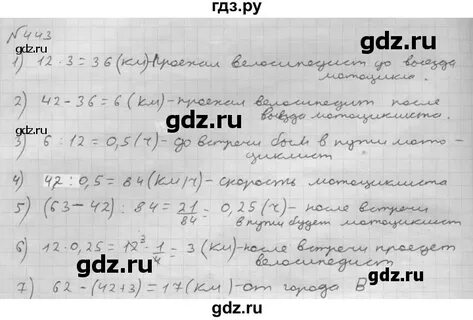 гдз.ру
№443
1) 12·3=36(км)-проехал велосипедист до выезда
мотоцикла.
2) 42-36=6(км)-проехал велосипедит после
выезда мотоциклиста.
3) 6:12=0,5(ч)-до встречи был в пути мото-
диклист
4) 42:0,5=84(км/ч)-скорость мотоциклиста
5) (63-42):84=21/84=0,25(ч)-после встречи
в пути будет мотоциклист
6) 12·0,25=12³·1/4=3(км)-после встречи проедет
велосипедист
7) 62-(42+3)=17(км)-от города В
gdz.ru
gdz.ru
gdz.ru
gdz.ru
gdz.ru
gdz.ru
gdz.ru